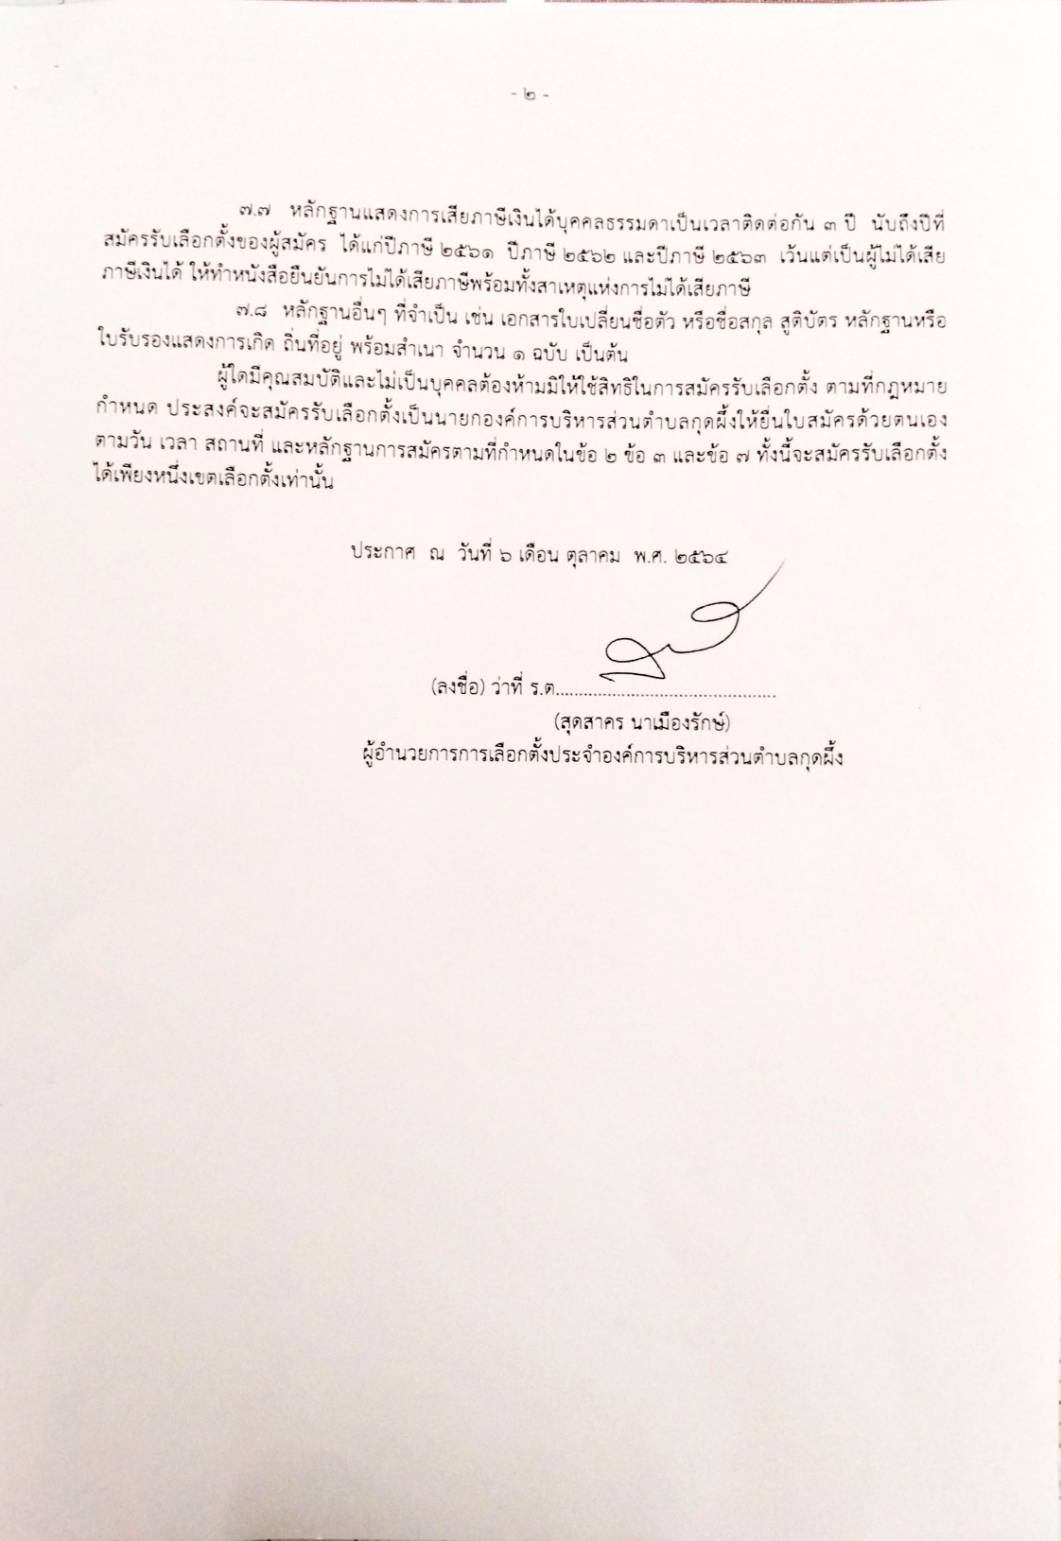 - ๒ -
๗.๗ หลักฐานแสดงการเสียภาษีเงินได้บุคคลธรรมดาเป็นเวลาติดต่อกัน ๓ ปี นับถึงปีที่
สมัครรับเลือกตั้งของผู้สมัคร ได้แก่ปีภาษี ๒๕๖๑ ปีภาษี ๒๕๖๒ และปีภาษี ๒๕๖๓ เว้นแต่เป็นผู้ไม่ได้เสีย
ภาษีเงินได้ ให้ทำหนังสือยืนยันการไม่ได้เสียภาษีพร้อมทั้งสาเหตุแห่งการไม่ได้เสียภาษี
๗.๘ หลักฐานอื่นๆ ที่จำเป็น เช่น เอกสารใบเปลี่ยนชื่อตัว หรือชื่อสกุล สูติบัตร หลักฐานหรือ
ใบรับรองแสดงการเกิด ถิ่นที่อยู่ พร้อมสำเนา จำนวน ๑ ฉบับ เป็นต้น
ผู้ใดมีคุณสมบัติและไม่เป็นบุคคลต้องห้ามมิให้ใช้สิทธิในการสมัครรับเลือกตั้ง ตามที่กฎหมาย
กำหนด ประสงค์จะสมัครรับเลือกตั้งเป็นนายกองค์การบริหารส่วนตำบลกุดผึ้งให้ยื่นใบสมัครด้วยตนเอง
ตามวัน เวลา สถานที่ และหลักฐานการสมัครตามที่กำหนดในข้อ ๒ ข้อ ๓ และข้อ ๗ ทั้งนี้จะสมัครรับเลือกตั้ง
ได้เพียงหนึ่งเขตเลือกตั้งเท่านั้น
ประกาศ ณ วันที่ ๖ เดือน ตุลาคม พ.ศ. ๒๕๖๔
(ลงชื่อ) ว่าที่ ร.ต...............................................
(สุดสาคร นาเมืองรักษ์)
ผู้อำนวยการการเลือกตั้งประจำองค์การบริหารส่วนตำบลกุดผึ้ง